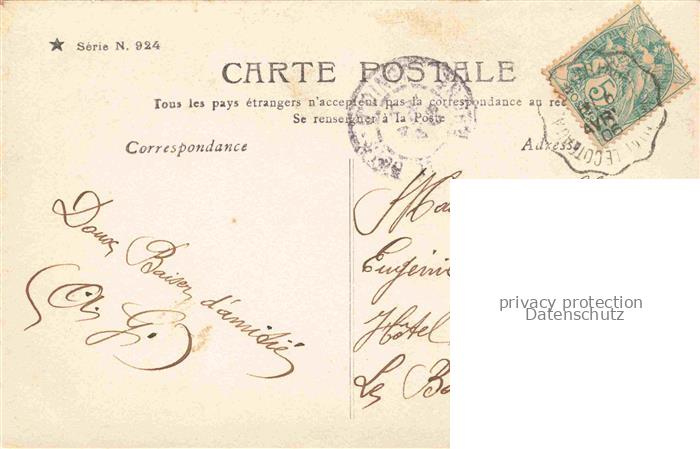 ★ Série N. 924
CARTE POSTALE
Tous les pays étrangers n'acceptent pas la correspondance au rec
Se renseigner à la Poste
Correspondance
Adresse
Doux Baisers d'amitié
A. G.
Eugénie
Hôtel
Les Ba
5
privacy protection
Datenschutz